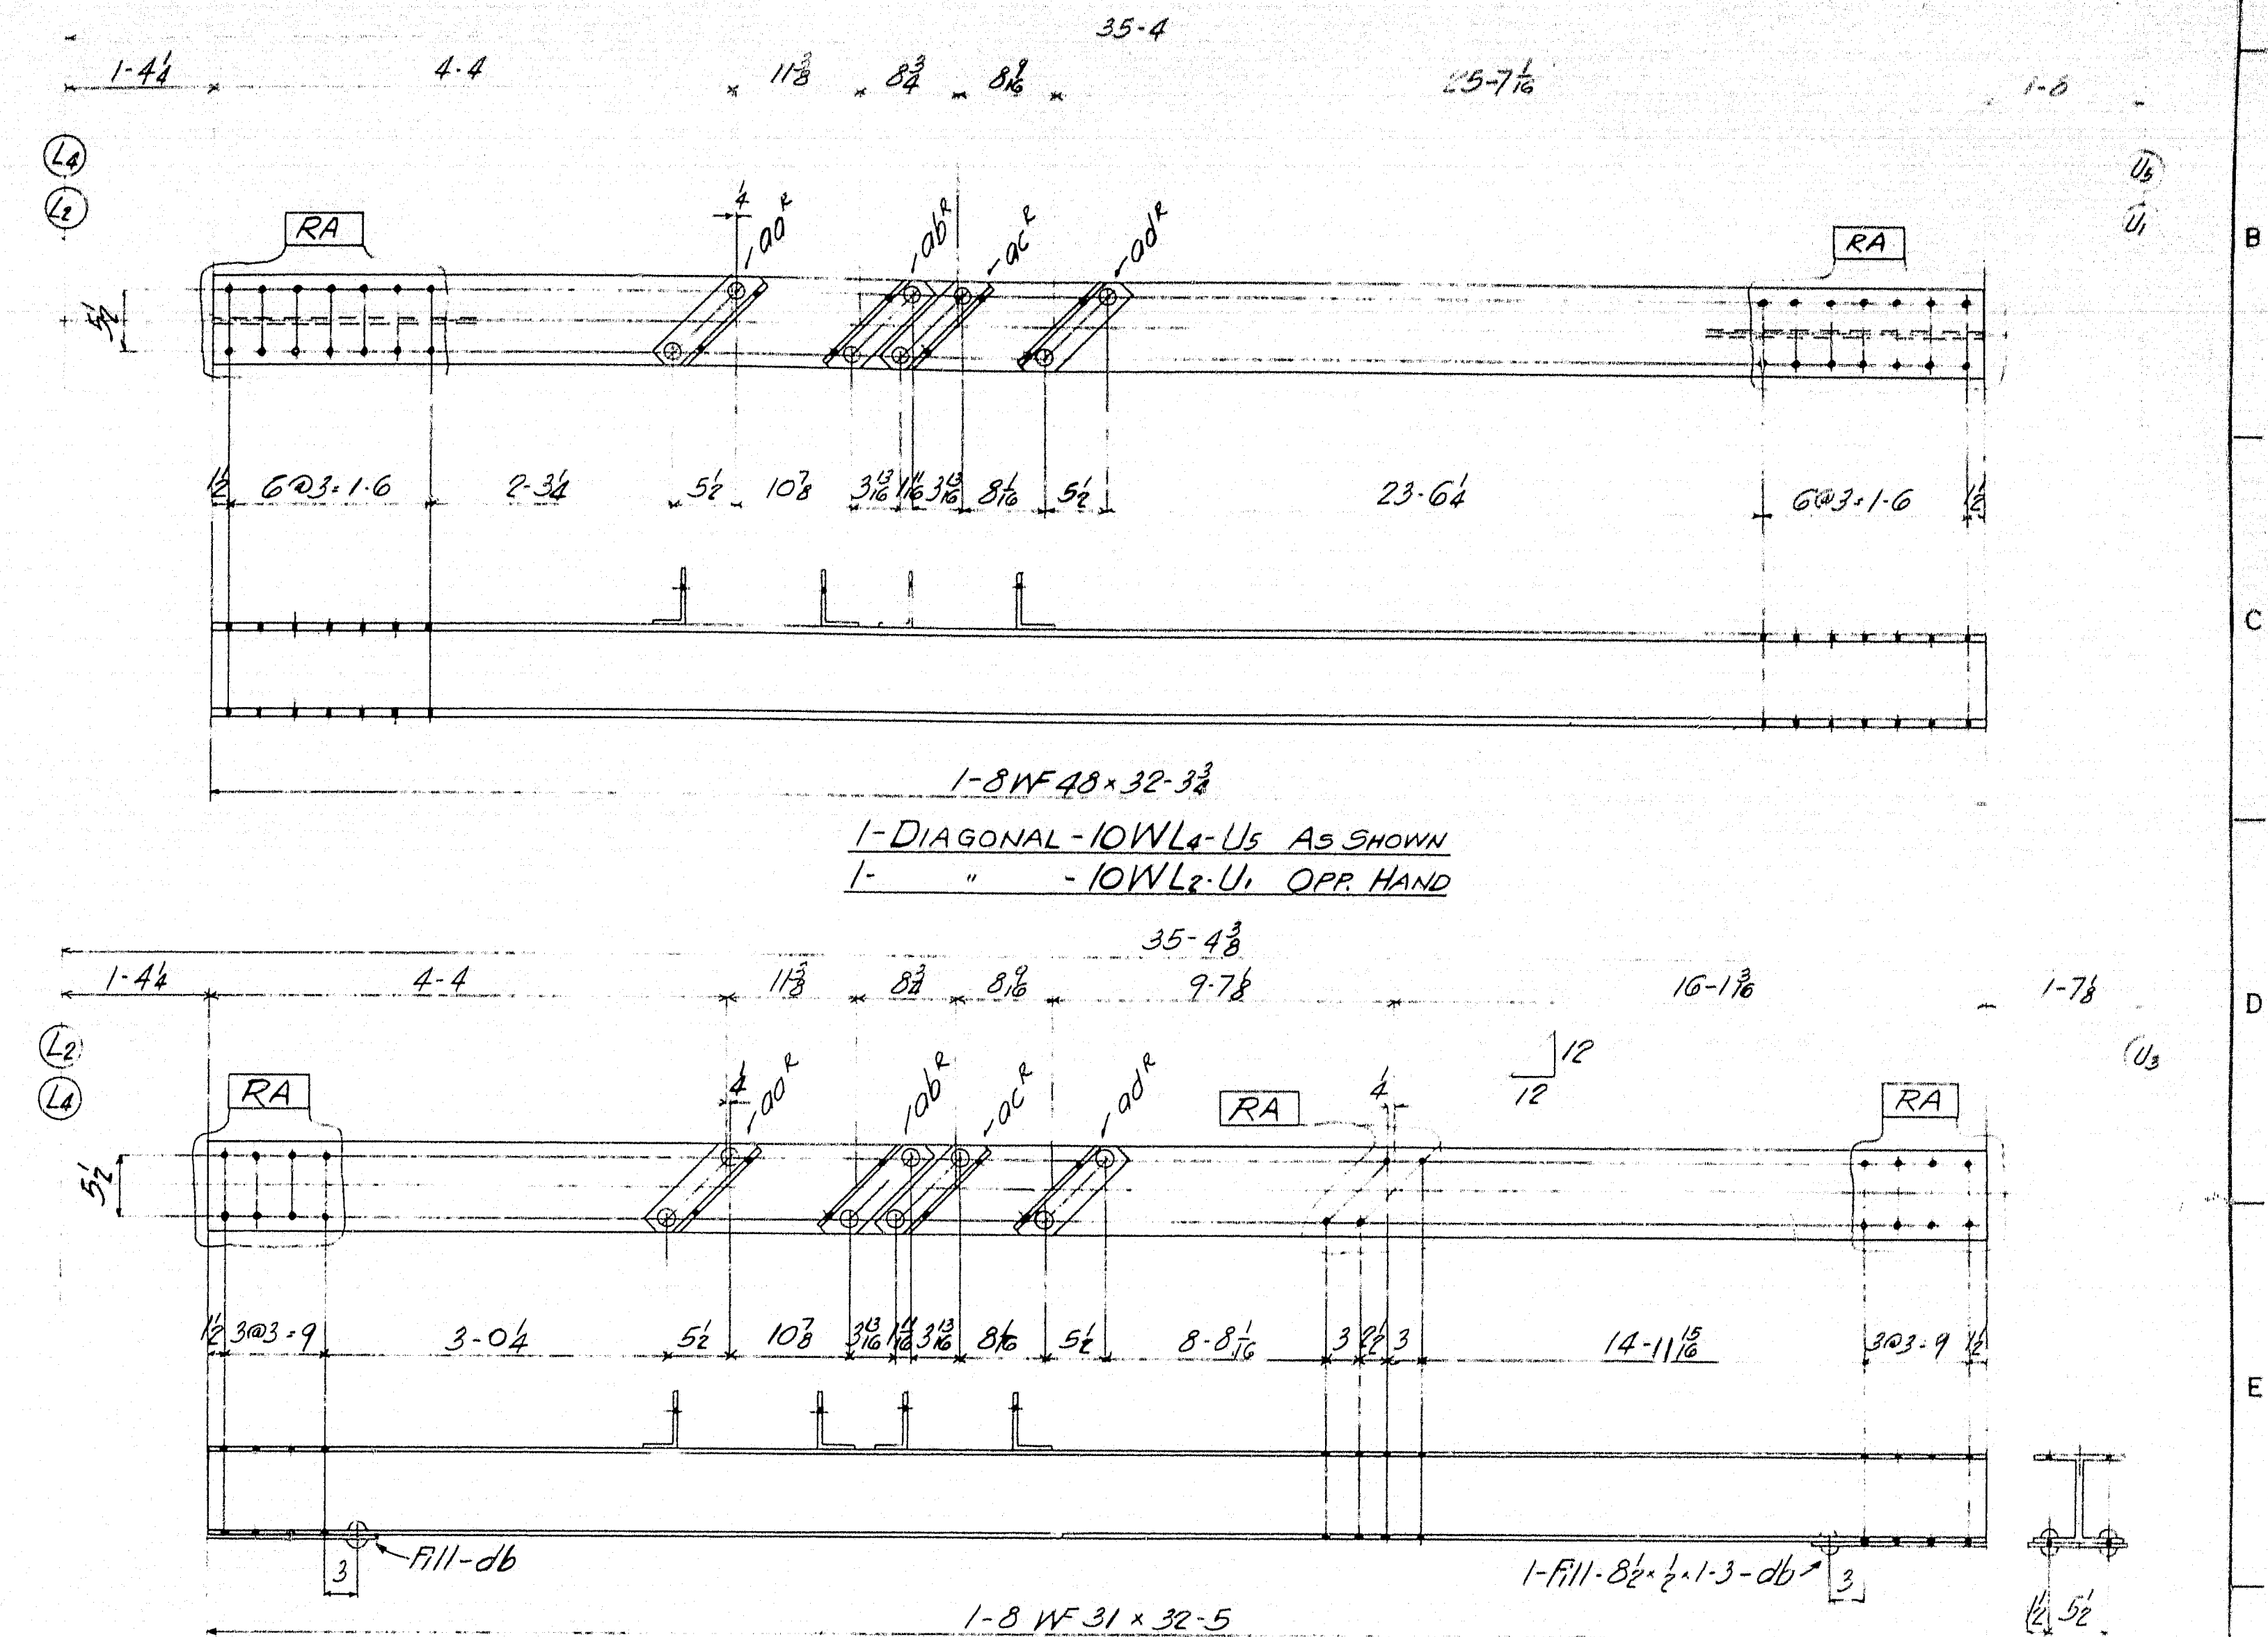 35-4
1-4 1/4 4-4 11 3/8 8 3/4 8 9/16 25-7 1/16
L4 U5
L2 U1
B
RA 1/4 aaR abR acR adR RA
5 1/2
1 1/2 6@3=1-6 2-3 1/4 5 1/2 10 7/8 3 13/16 1 11/16 3 13/16 8 1/16 5 1/2 23-6 1/4 6@3=1-6 1 1/2
C
1-8 WF 48 x 32-3 3/4
1-DIAGONAL -10WL4-U5 AS SHOWN
1- " -10WL2-U1 OPP. HAND
35-4 3/8
1-4 1/4 4-4 11 3/8 8 3/4 8 9/16 9-7 1/8 16-1 3/16 1-7 1/8
D
L2 U3
L4
12
12
RA 1/4 aaR abR acR adR RA 1/4 RA
5 1/2
1 1/2 3@3=9 3-0 1/4 5 1/2 10 7/8 3 13/16 1 11/16 3 13/16 8 1/16 5 1/2 8-8 1/16 3 2 1/2 3 14-11 15/16 3@3=9 1 1/2
E
Fill-db
3
1-Fill-8 1/2 x 1/2 x 1-3-db
3
1-8 WF 31 x 32-5
1 1/2 5 1/2